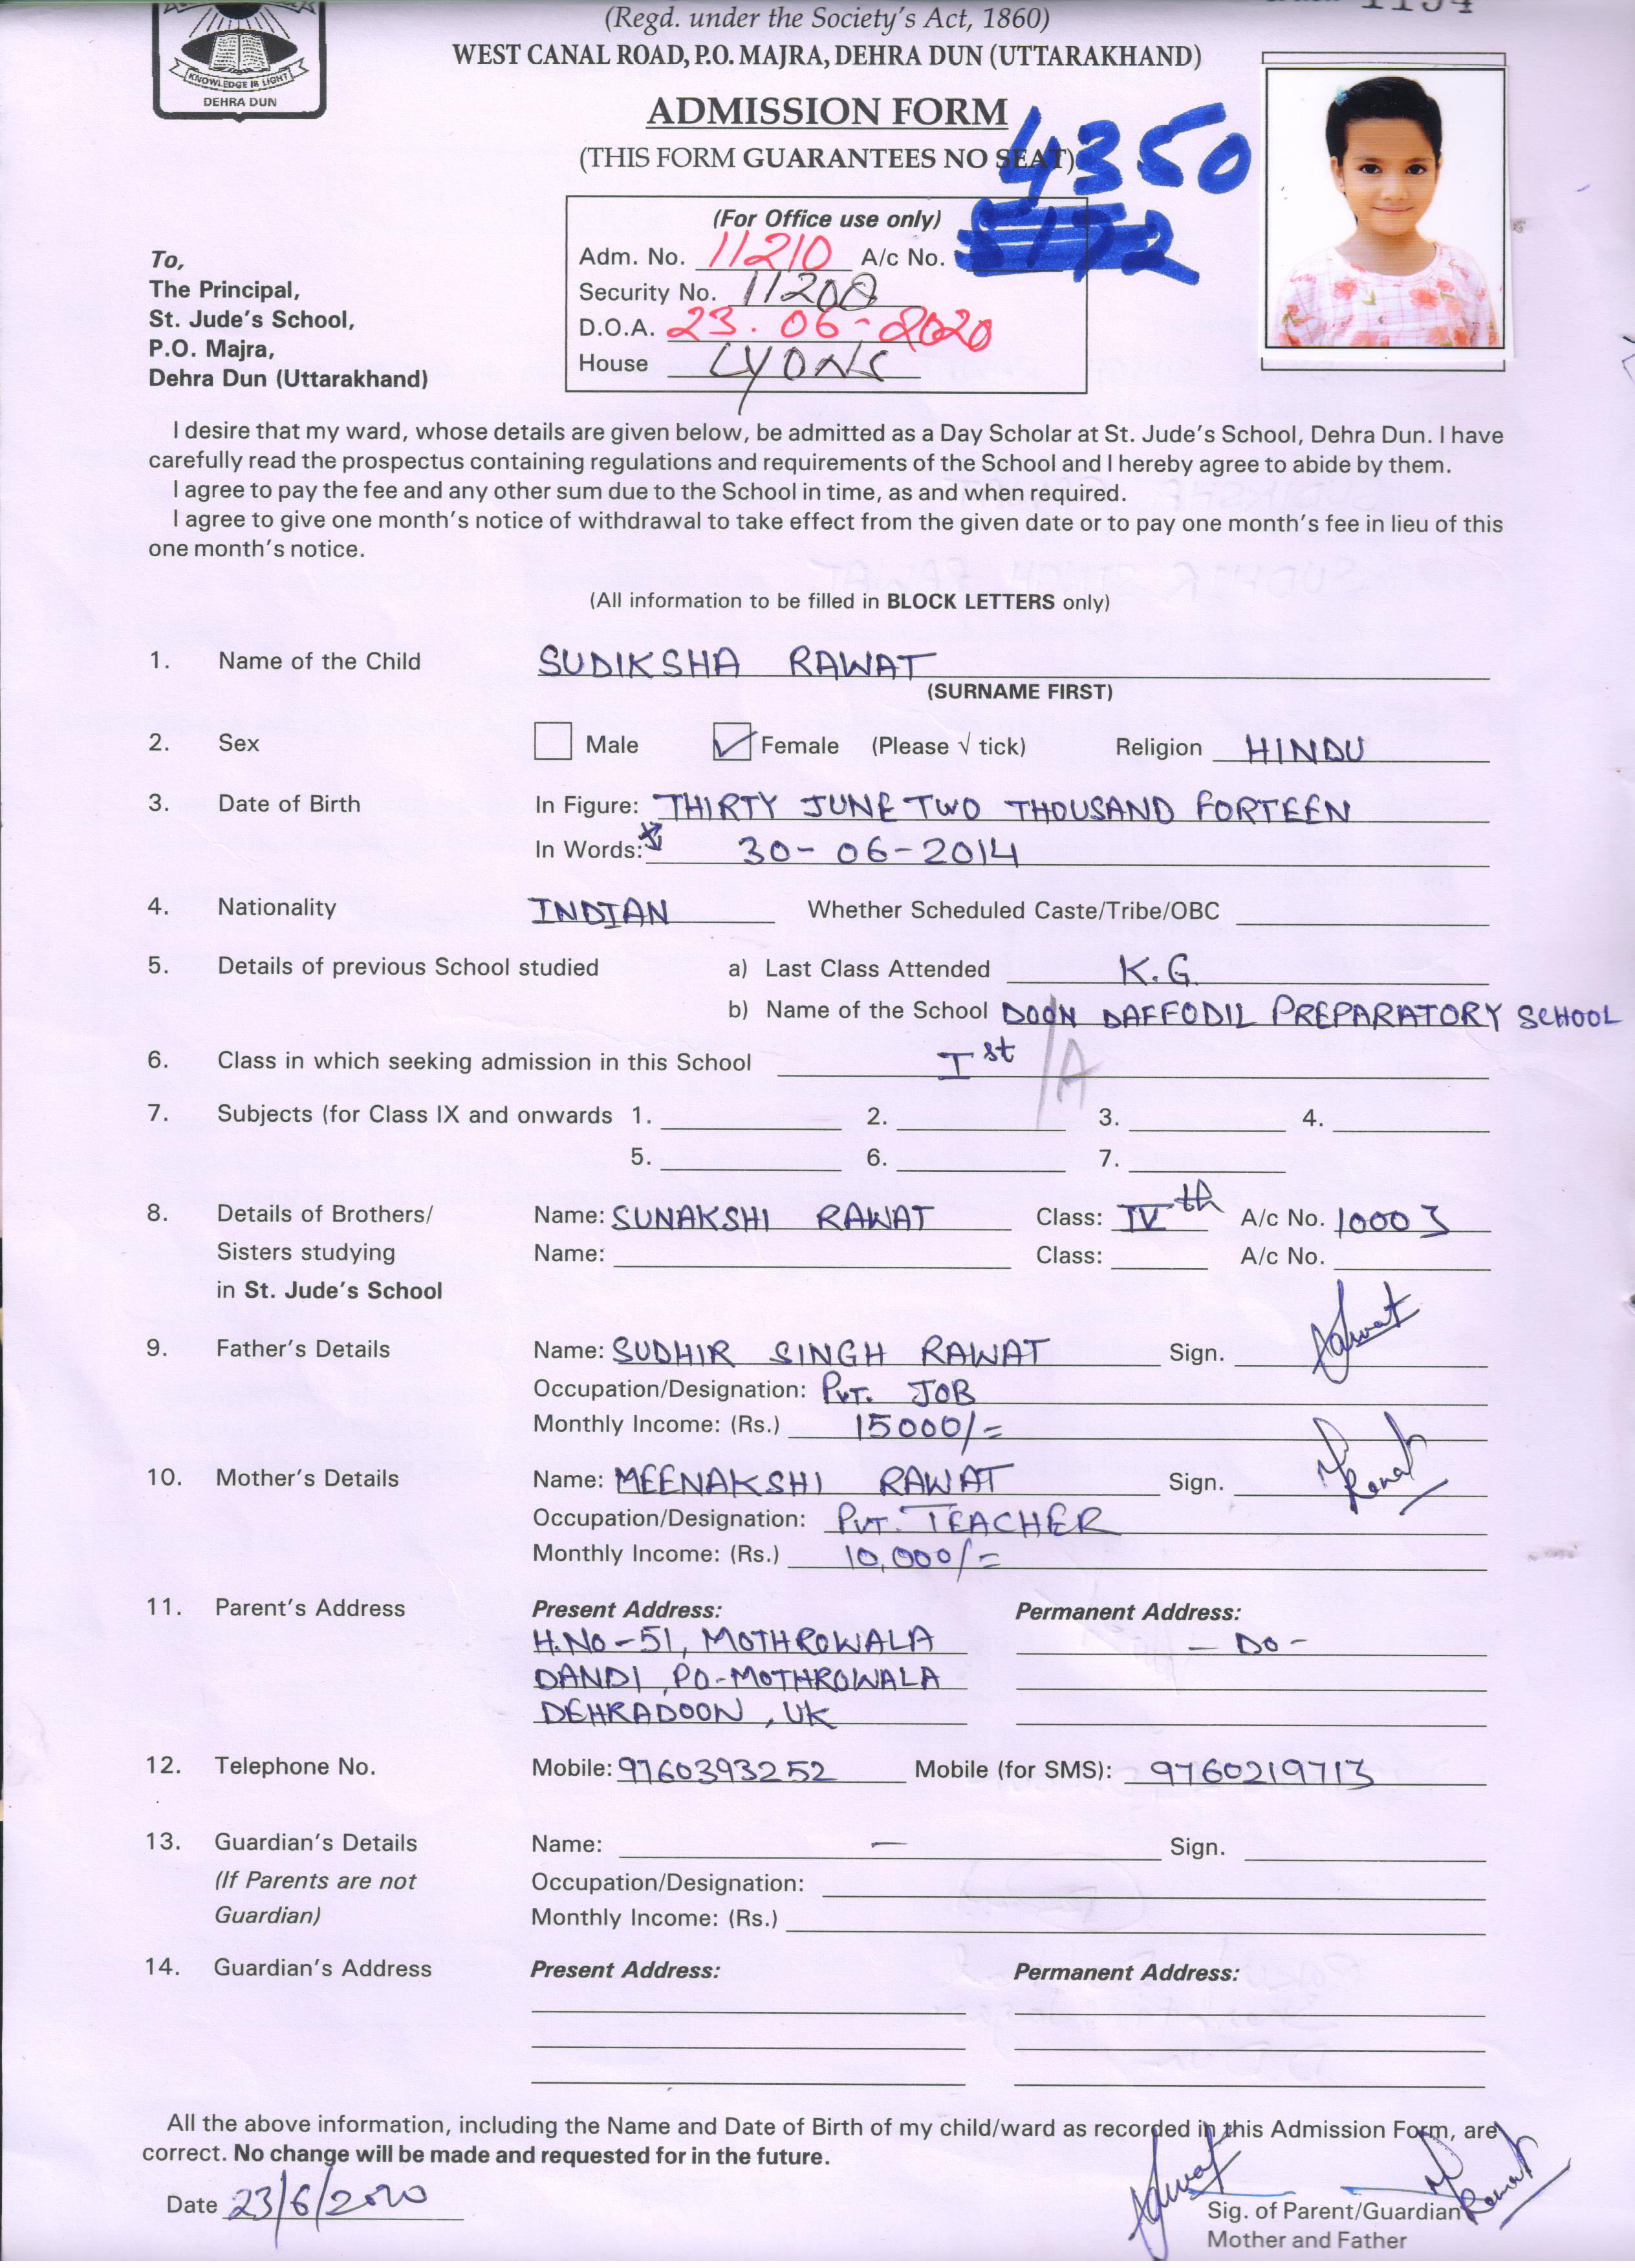 (Regd. under the Society's Act, 1860)
WEST CANAL ROAD, P.O. MAJRA, DEHRA DUN (UTTARAKHAND)
KNOWLEDGE IS LIGHT
DEHRA DUN
ADMISSION FORM
(THIS FORM GUARANTEES NO SEAT)
4350
(For Office use only)
Adm. No. 11210 A/c No.
Security No. 11200
D.O.A. 23.06-2020
House LYONS
To,
The Principal,
St. Jude's School,
P.O. Majra,
Dehra Dun (Uttarakhand)
I desire that my ward, whose details are given below, be admitted as a Day Scholar at St. Jude's School, Dehra Dun. I have
carefully read the prospectus containing regulations and requirements of the School and I hereby agree to abide by them.
I agree to pay the fee and any other sum due to the School in time, as and when required.
I agree to give one month's notice of withdrawal to take effect from the given date or to pay one month's fee in lieu of this
one month's notice.
(All information to be filled in BLOCK LETTERS only)
1. Name of the Child SUDIKSHA RAWAT
(SURNAME FIRST)
2. Sex Male Female (Please √ tick) Religion HINDU
3. Date of Birth In Figure: THIRTY JUNE TWO THOUSAND FORTEEN
In Words: 30-06-2014
4. Nationality INDIAN Whether Scheduled Caste/Tribe/OBC
5. Details of previous School studied a) Last Class Attended K.G.
b) Name of the School DOON DAFFODIL PREPARATORY SCHOOL
6. Class in which seeking admission in this School Ist /A
7. Subjects (for Class IX and onwards 1. 2. 3. 4.
5. 6. 7.
8. Details of Brothers/ Name: SUNAKSHI RAWAT Class: IVth A/c No. 10003
Sisters studying Name: Class: A/c No.
in St. Jude's School
9. Father's Details Name: SUDHIR SINGH RAWAT Sign. Rawat
Occupation/Designation: PVT. JOB
Monthly Income: (Rs.) 15000/=
10. Mother's Details Name: MEENAKSHI RAWAT Sign. M Rawat
Occupation/Designation: PVT. TEACHER
Monthly Income: (Rs.) 10,000/=
11. Parent's Address Present Address: Permanent Address:
H.NO-51, MOTHROWALA - DO -
DANDI, PO-MOTHROWALA
DEHRADOON, UK
12. Telephone No. Mobile: 9760393252 Mobile (for SMS): 9760219713
13. Guardian's Details Name: — Sign.
(If Parents are not Occupation/Designation:
Guardian) Monthly Income: (Rs.)
14. Guardian's Address Present Address: Permanent Address:
All the above information, including the Name and Date of Birth of my child/ward as recorded in this Admission Form, are
correct. No change will be made and requested for in the future.
Date 23/6/2020 Rawat M Rawat
Sig. of Parent/Guardian
Mother and Father